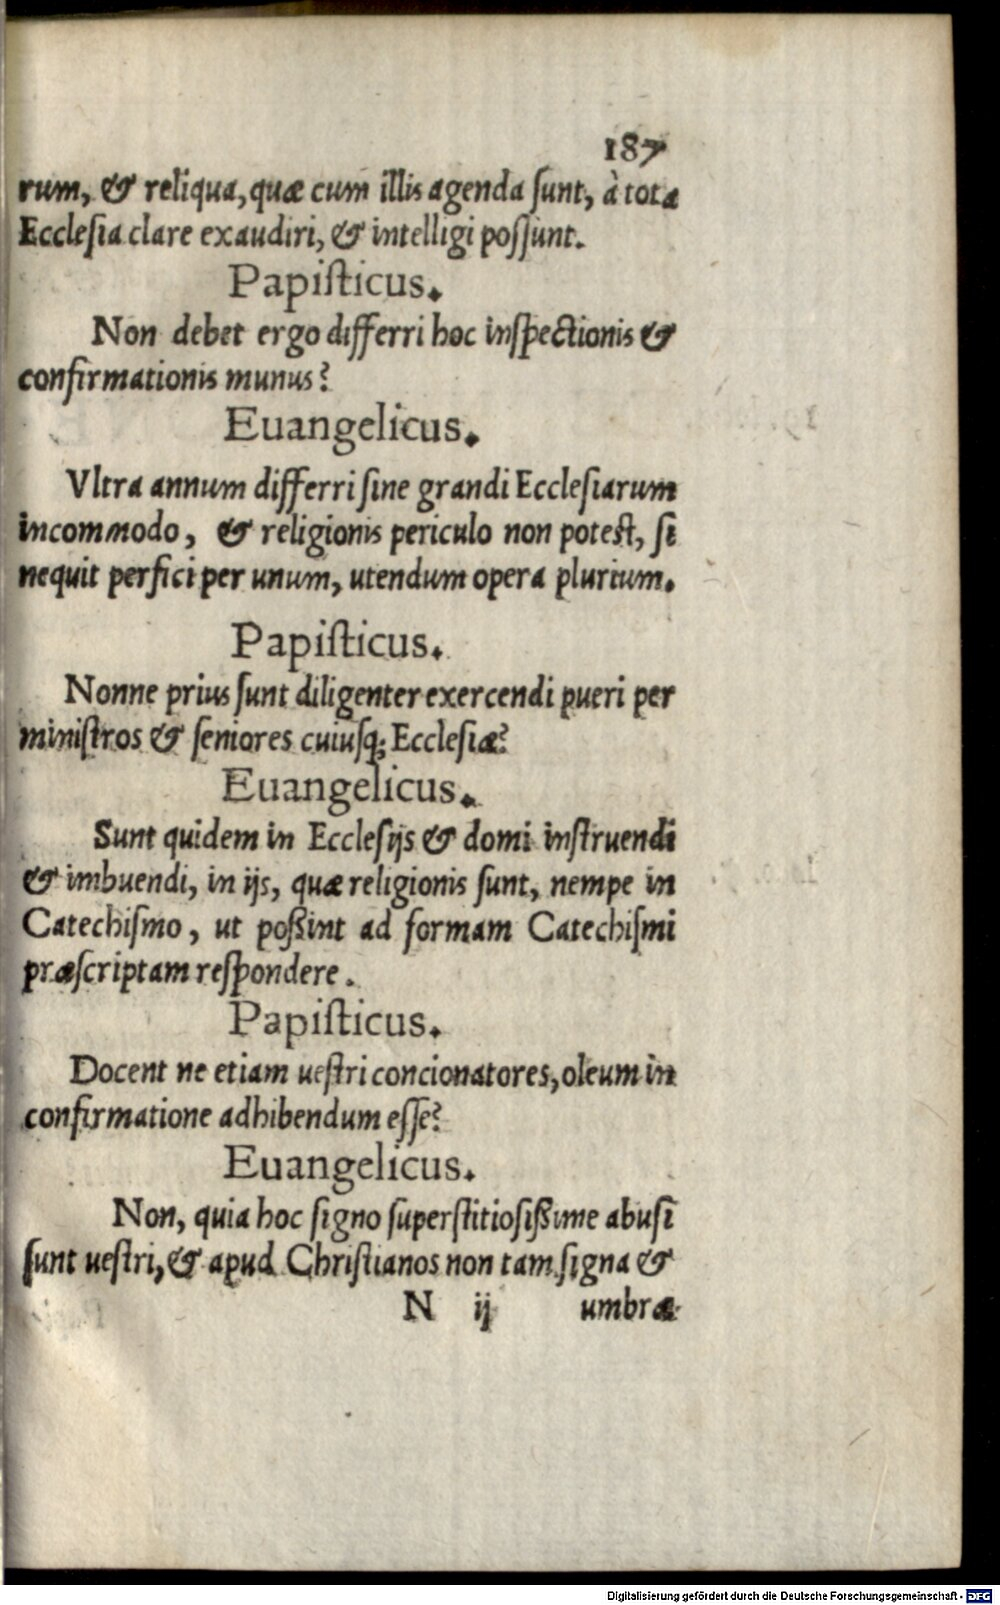 187
rum, & reliqua, quæ cum illis agenda ſunt, à tota
Eccleſia clare exaudiri, & intelligi poſſunt.
Papiſticus.
Non debet ergo differri hoc inſpectionis &
confirmationis munus?
Euangelicus.
Vltra annum differri ſine grandi Eccleſiarum
incommodo, & religionis periculo non poteſt, ſi
nequit perfici per unum, utendum opera plurium.
Papiſticus.
Nonne prius ſunt diligenter exercendi pueri per
miniſtros & ſeniores cuiusq; Eccleſiæ?
Euangelicus.
Sunt quidem in Eccleſijs & domi inſtruendi
& imbuendi, in ijs, quæ religionis ſunt, nempe in
Catechiſmo, ut poßint ad formam Catechiſmi
præſcriptam reſpondere.
Papiſticus.
Docent ne etiam ueſtri concionatores, oleum in
confirmatione adhibendum eſſe?
Euangelicus.
Non, quia hoc ſigno ſuperſtitioſißime abuſi
ſunt ueſtri, & apud Chriſtianos non tam ſigna &
N ij umbræ
Digitalisierung gefördert durch die Deutsche Forschungsgemeinschaft - DFG